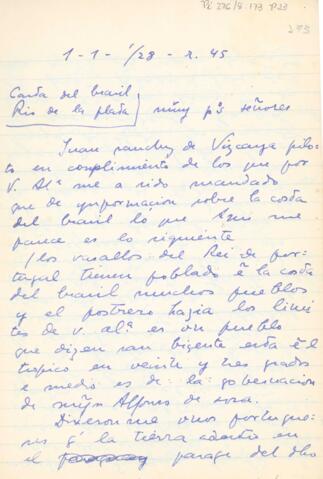 293
1-1-1/28-R.45
Costa del brasil
Rio de la plata
muy pos señores
Juan sanchez de Vizcaya pilo-
to en conplimiento de los que por
V. Alª me a sido mandado
que de ynformacion sobre la costa
del brasil lo que a mi me
parece es lo siguiente
/ los vasallos del Rei de por-
tugal tienen poblado ẽ la costa
del brasil muchos pueblos
y el postrero hazia los limi
tes de v. alª es un pueblo
que dizen san bizente esta ẽ el
tropico en veinte y tres grados
e medio es de: la: gobernacion
de min Alfonso de sosa.
Dixeronme unos portugue-
ses q̃ la tierra adentro en
el parage del dho